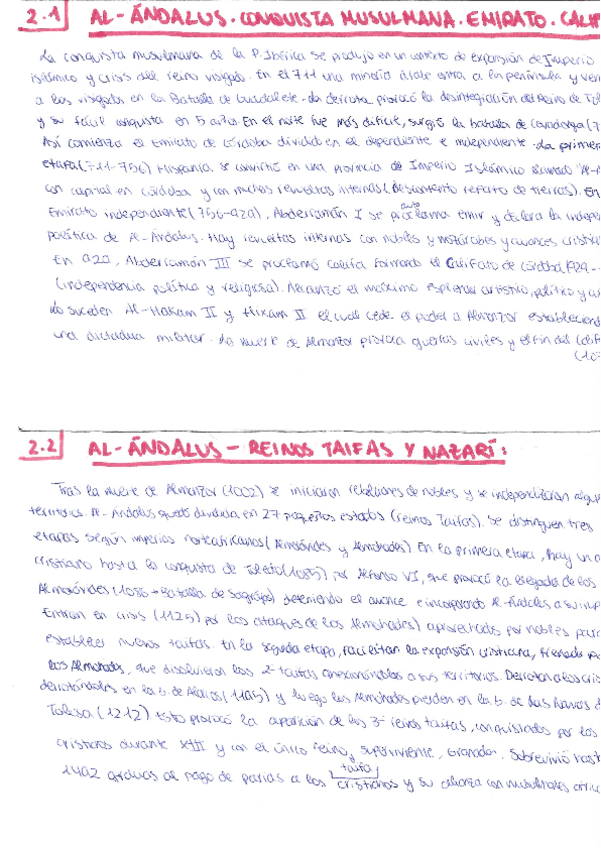 2.1 AL-ÁNDALUS. CONQUISTA MUSULMANA. EMIRATO. CALIF
La conquista musulmana de la P. Ibérica se produjo en un contexto de expansión del Imperio
islámico y crisis del reino visigodo. En el 711 una minoría árabe entra a la península y ven
a los visigodos en la Batalla de Guadalete. La derrota provocó la desintegración del Reino de Tol
y su fácil conquista en 5 años. En el norte fue más difícil, surgió la batalla de Covadonga (7
Así comienza el Emirato de Córdoba dividido en el dependiente e independiente. La primera
etapa (711-756) Hispania se convirtió en una provincia de Imperio Islámico llamado "Al-A
con capital en Córdoba y con muchas revueltas internas (descontento reparto de tierras). En
Emirato independiente (756-929), Abderramán I se proclama emir y declara la indepe
política de Al-Ándalus. Hay revueltas internas con nobles y mozárabes y avances cristia
En 929, Abderramán III se proclamó califa formando el Califato de Córdoba (929-
(independencia política y religiosa). Alcanzó el máximo esplendor artístico, político y
Lo suceden Al-Hakam II y Hixam II el cual cede el poder a Almanzor estableciend
una dictadura militar. La muerte de Almanzor provoca guerras civiles y el fin del Calif
(103
2.2 AL-ÁNDALUS - REINOS TAIFAS Y NAZARÍ:
Tras la muerte de Almanzor (1002) se iniciaron rebeliones de nobles y se independizaron algu
territorios. Al-Ándalus quedó dividida en 27 pequeños estados (reinos Taifas). Se distinguen tres
etapas según imperios norteafricanos (Almorávides y Almohades). En la primera etapa, hay un a
cristiano hasta la conquista de Toledo (1085) por Alfonso VI, que provocó la llegada de los
Almorávides (1086 → Batalla de Sagrajas) deteniendo el avance e incorporando Al-Ándalus a su imp
Entran en crisis (1125) por los ataques de los Almohades) aprovechados por nobles para
establecer nuevos taifas. En la segunda etapa, facilitan la expansión cristiana, frenada po
los Almohades, que disolvieron los 2º taifas anexionándolos a sus territorios. Derrotan a los cris
derrotándoles en la b. de Alarcos (1195) y luego los Almohades pierden en la b. de Las Navas d
Tolosa (1212) Esto provocó la aparición de los 3º reinos taifas, conquistados por los
cristianos durante sXIII y con el único reino superviviente, Granada. Sobrevivió hast
taifa
1492 gracias al pago de parias a los cristianos y su alianza con musulmanes afric